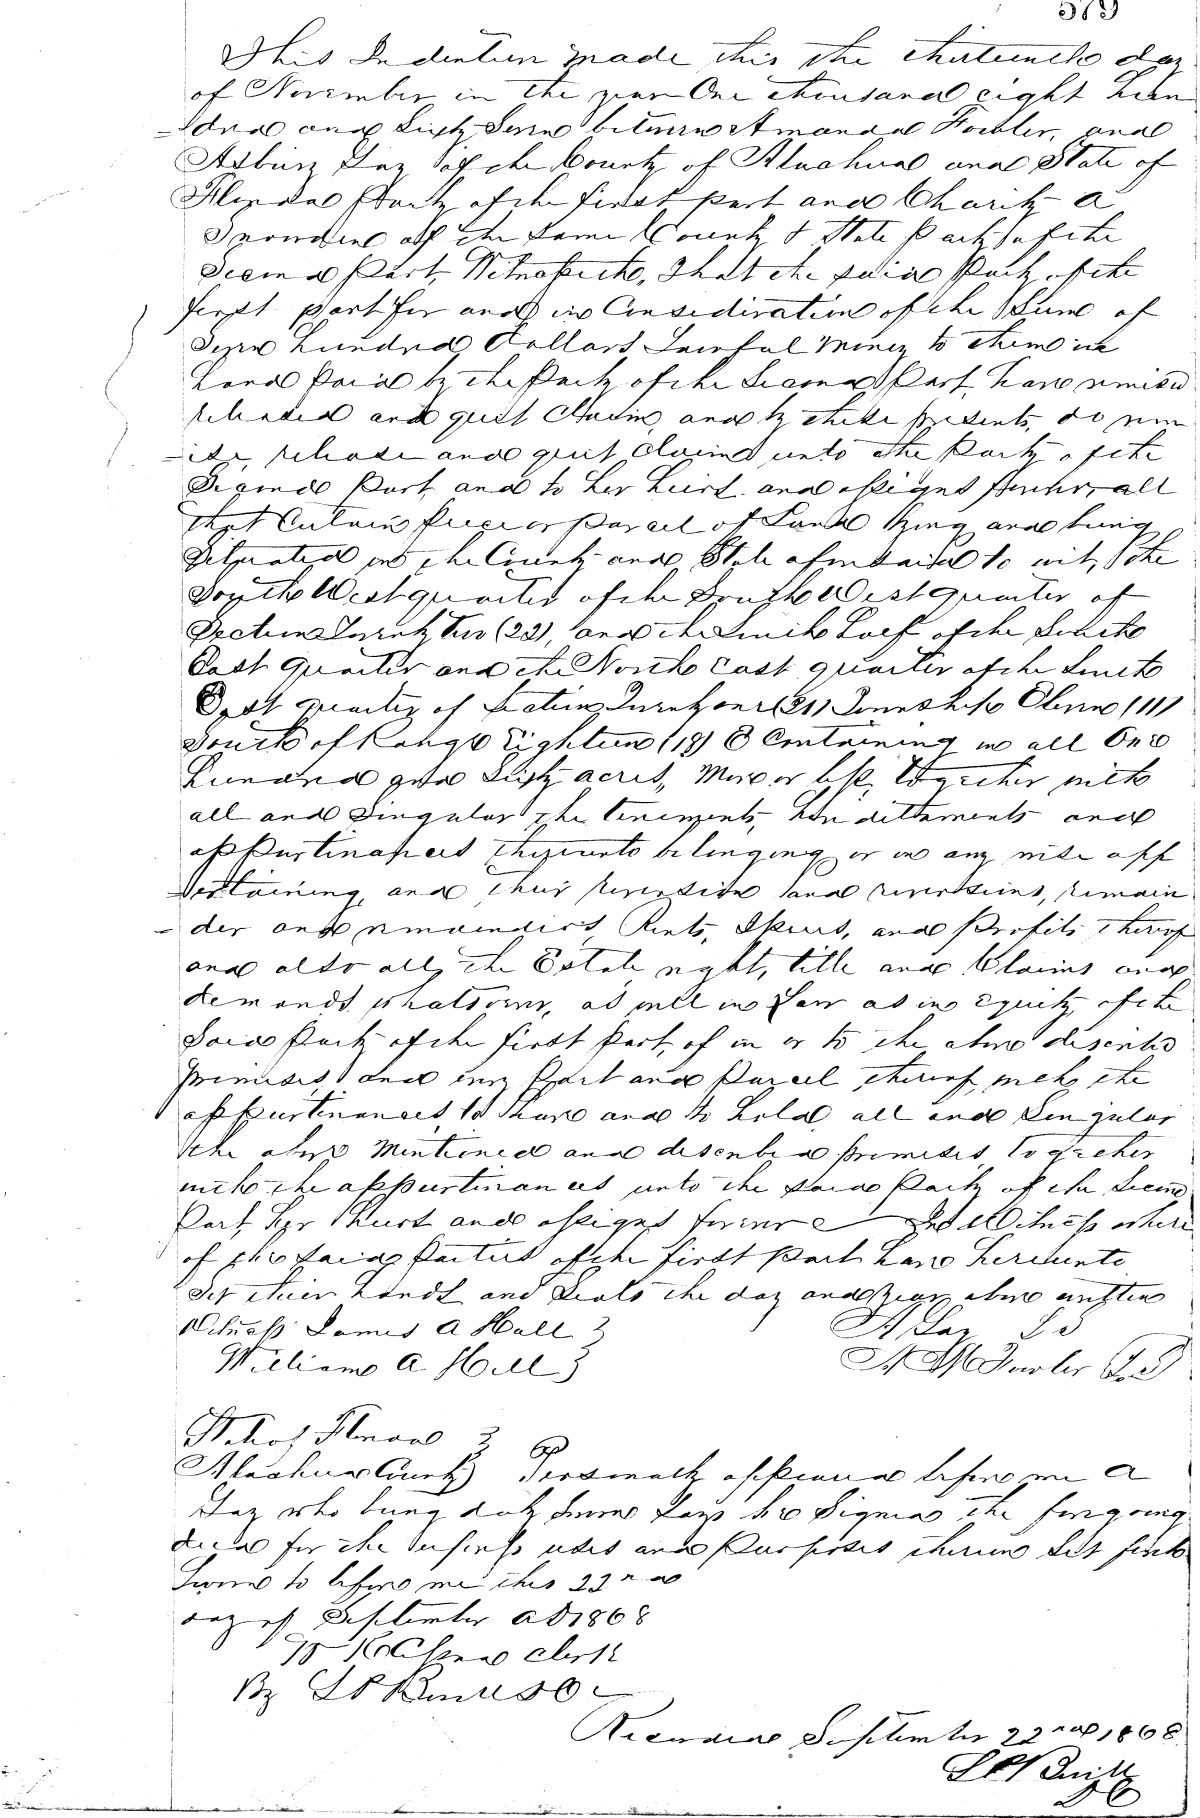 579
This Indenture made this the thirteenth day
of November in the year One thousand eight hun
-dred and Sixty Seven between Amanda Fowler, and
Asbury Lay of the County of Alachua and State of
Florida Party of the first part and Charity A
Snowden of the same County & State Party of the
Second Part, Witnesseth, That the said Party of the
first part for and in Consideration of the Sum of
Seven hundred Dollars Lawful Money to them in
hand Paid by the Party of the Second Part, have remised
released and quit Claim, and by these presents, do rem
-ise, release and quit claim unto the Party of the
Second Part, and to her heirs and assigns forever, all
that Certain piece or parcel of Land lying and being
Situated in the County and State aforesaid to wit, the
South West quarter of the South West quarter of
Section Twenty Two (22), and the South half of the South
East quarter and the North east quarter of the South
East quarter of Section Twenty one (21) Township Eleven (11)
South of Range Eighteen (18) E Containing in all One
hundred and Sixty acres, More or less, together with
all and Singular the tenements, hereditaments and
appurtinances thereunto belonging or in any wise app
-ertaining, and their reversion and reversions, remain
-der and remainders, Rents, Issues, and Profits thereof
and also all the Estate right, title and Claims and
demands whatsoever, as well in Law as in equity of the
Said Party of the first Part, of in or to the above described
premises, and every Part and Parcel thereof, with the
appurtinances, to have and to hold, all and Singular
the above Mentioned and described premises, together
with the appurtinances unto the said Party of the Second
Part, her heirs and assigns forever In Witness where
of the Said Parties of the first Part have hereunto
Set their hands and Seals the day and Year above written
Witness James A Hall } A Lay LS
William A Hill } A M Fowler LS
State of Florida }
Alachua County } Personally appeared before me A
Lay who being duly Sworn Says he Signed the foregoing
deed for the uses and Purposes therein Set forth
Sworn to before me this 22nd
day of September AD 1868
Clerk
By
Recorded September 22nd 1868
DC